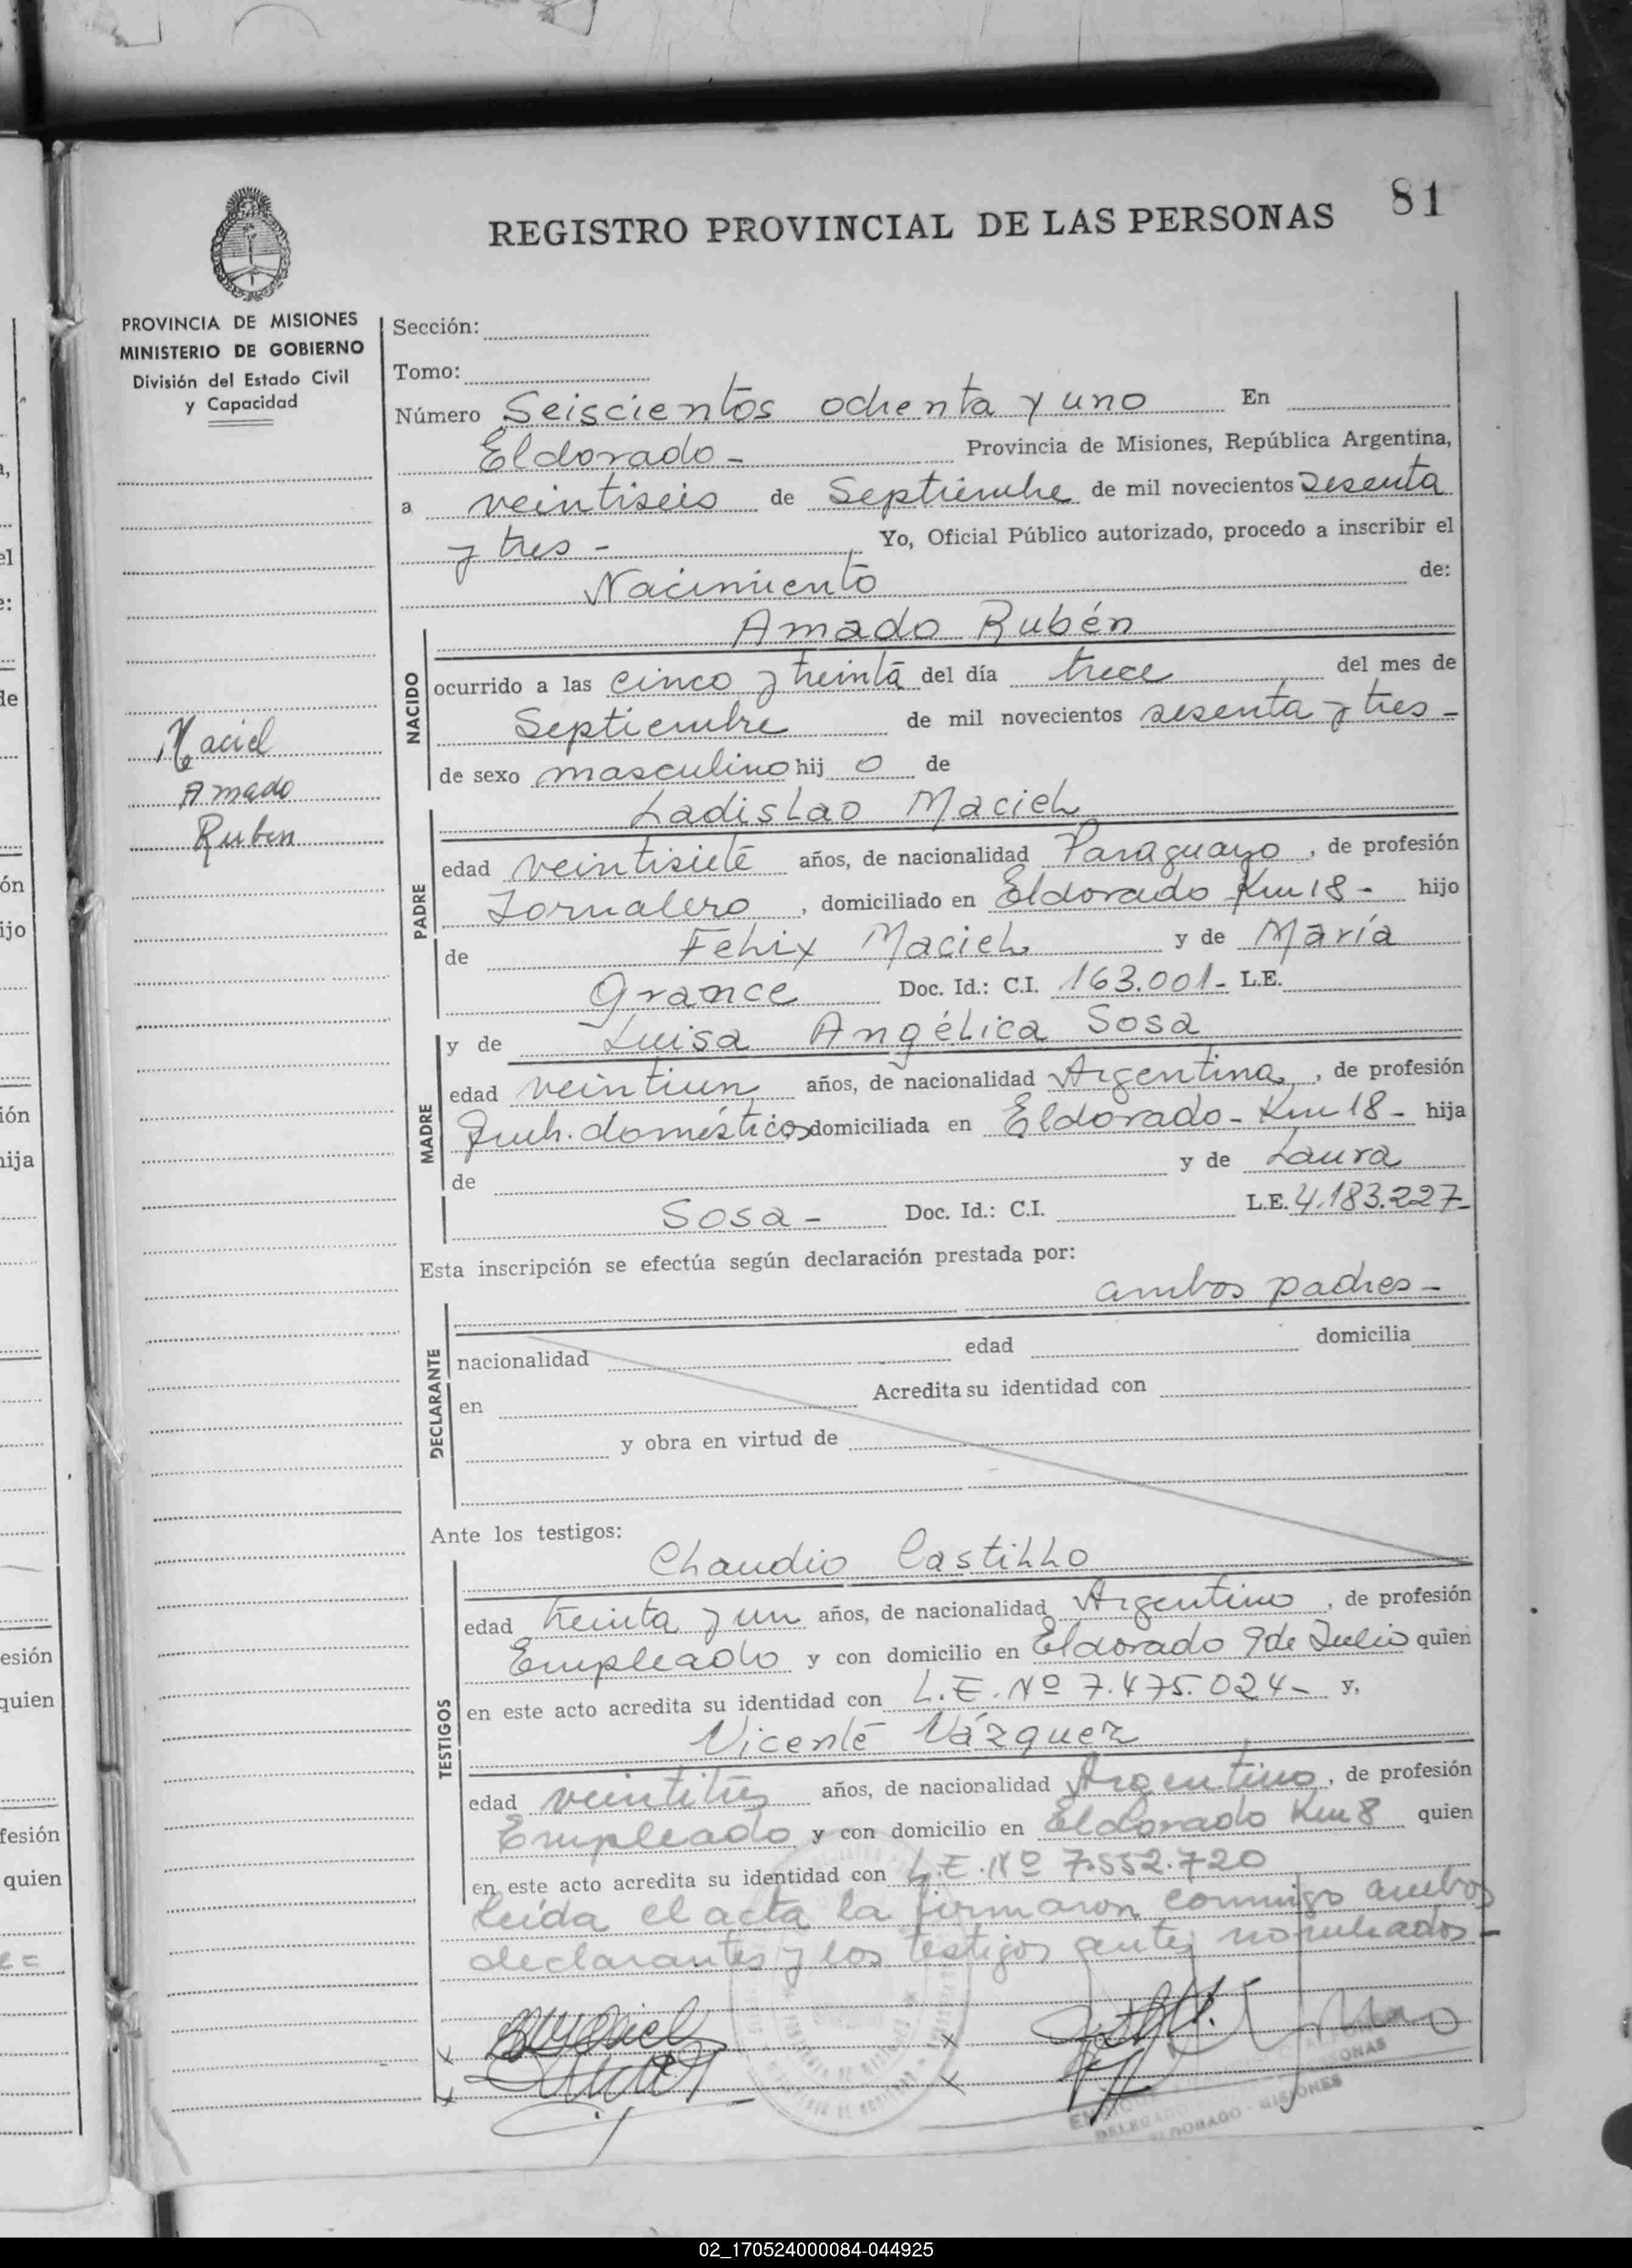 81
REGISTRO PROVINCIAL DE LAS PERSONAS
PROVINCIA DE MISIONES
MINISTERIO DE GOBIERNO
División del Estado Civil
y Capacidad
Sección:
Tomo:
Número Seiscientos ochenta y uno En
Eldorado - Provincia de Misiones, República Argentina,
a veintiseis de Septiembre de mil novecientos sesenta
y tres - Yo, Oficial Público autorizado, procedo a inscribir el
Nacimiento de:
NACIDO
Amado Rubén
ocurrido a las cinco y treinta del día trece del mes de
Septiembre de mil novecientos sesenta y tres -
de sexo masculino hij o de
Maciel
Amado
Ruben
PADRE
Ladislao Maciel
edad veintisiete años, de nacionalidad Paraguayo, de profesión
Jornalero, domiciliado en Eldorado Km 18 - hijo
de Felix Maciel y de María
Grance Doc. Id.: C.I. 163.001- L.E.
MADRE
y de Luisa Angélica Sosa
edad veintiun años, de nacionalidad Argentina, de profesión
domésticos domiciliada en Eldorado - Km 18 - hija
de y de Laura
Sosa - Doc. Id.: C.I. L.E. 4.183.227-
Esta inscripción se efectúa según declaración prestada por:
ambos padres -
DECLARANTE
nacionalidad edad domicilia
en Acredita su identidad con
y obra en virtud de
Ante los testigos:
TESTIGOS
Claudio Castillo
edad treinta y un años, de nacionalidad Argentino, de profesión
Empleado y con domicilio en Eldorado 9 de Julio quien
en este acto acredita su identidad con L.E. Nº 7.475.024- y,
Vicente Vázquez
edad veintitres años, de nacionalidad Argentino, de profesión
Empleado y con domicilio en Eldorado Km 8 quien
en este acto acredita su identidad con L.E. Nº 7.552.720
Leída el acta la firmaron conmigo ambos
declarantes y los testigos antes nombrados -
ELDORADO - MISIONES
02_170524000084-044925